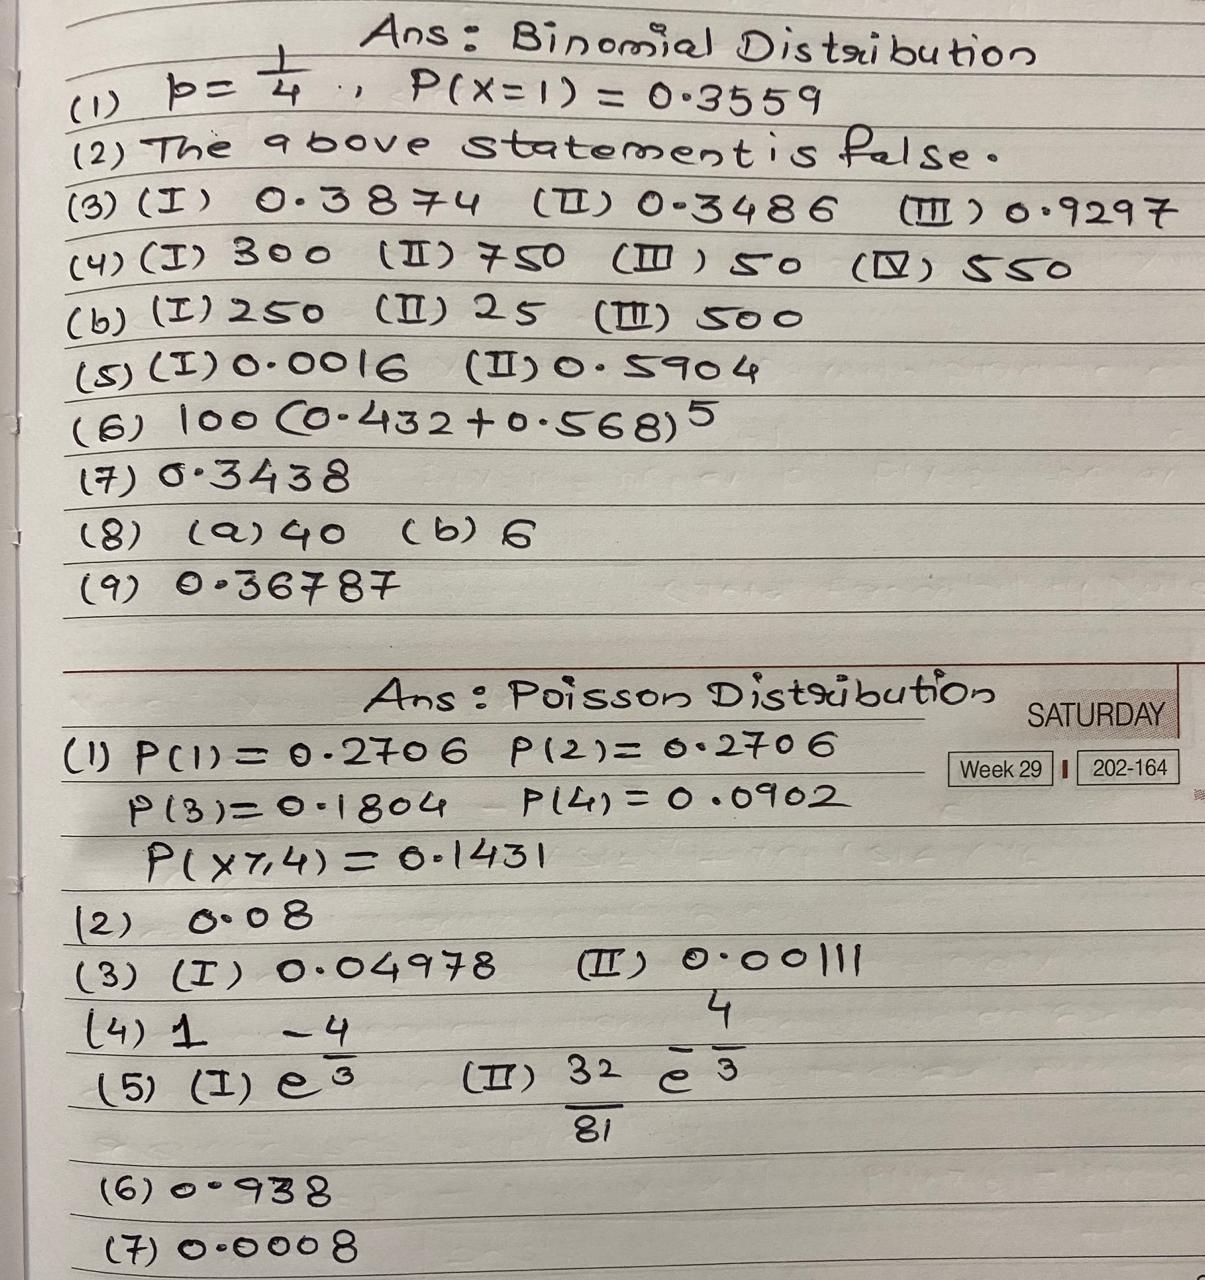 Ans: Binomial Distribution
(1) p = 1/4 ., P(X=1) = 0.3559
(2) The above statement is false.
(3) (I) 0.3874 (II) 0.3486 (III) 0.9297
(4) (I) 300 (II) 750 (III) 50 (IV) 550
(b) (I) 250 (II) 25 (III) 500
(5) (I) 0.0016 (II) 0.5904
(6) 100 (0.432+0.568)^5
(7) 0.3438
(8) (a) 40 (b) 6
(9) 0.36787
Ans: Poisson Distribution
SATURDAY
Week 29 202-164
(1) P(1) = 0.2706 P(2) = 0.2706
P(3) = 0.1804 P(4) = 0.0902
P(X≥4) = 0.1431
(2) 0.08
(3) (I) 0.04978 (II) 0.00111
(4) 1
(5) (I) e^-4/3 (II) 32/81 e^-4/3
(6) 0.938
(7) 0.0008